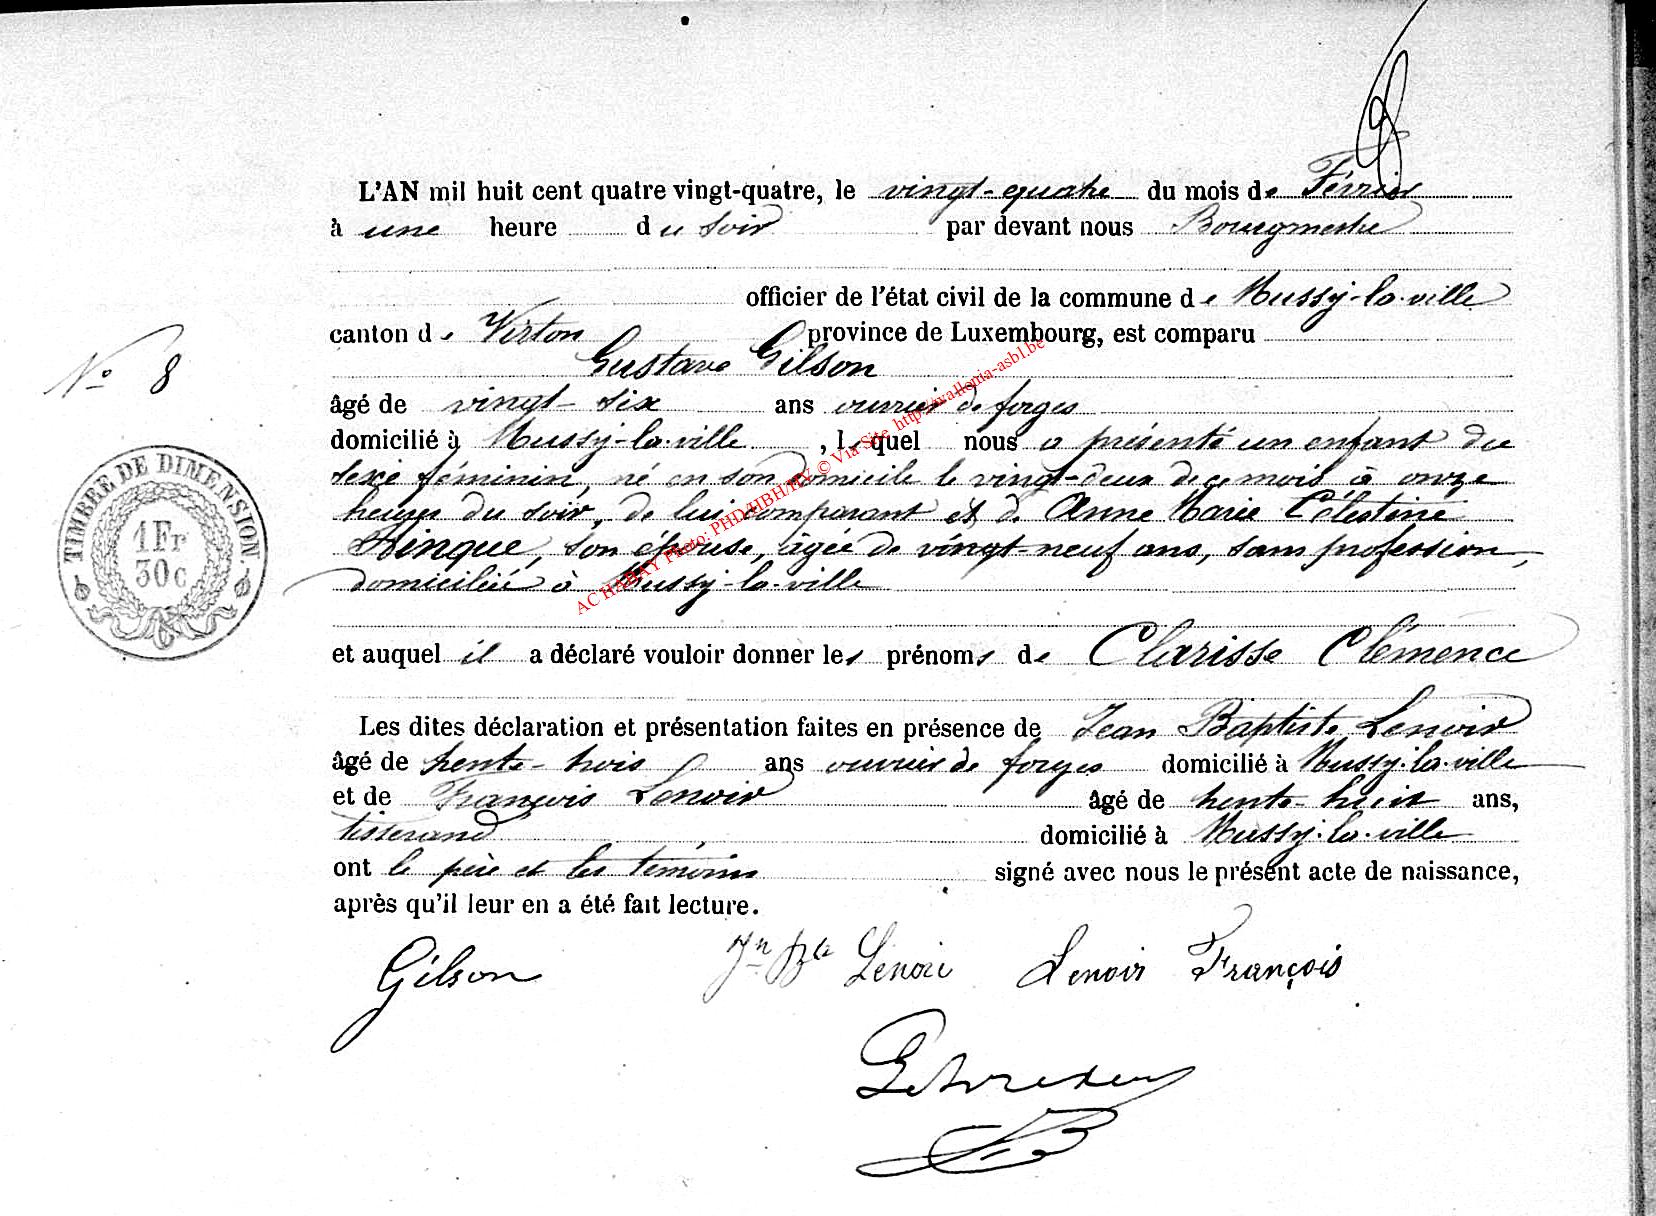 L'AN mil huit cent quatre vingt-quatre, le vingt-quatre du mois de Février
à une heure du soir par devant nous Bourgmestre
officier de l'état civil de la commune de Mussy-la-ville
canton de Virton province de Luxembourg, est comparu
Gustave Gilson
âgé de vingt-six ans ouvrier de forges
domicilié à Mussy-la-ville, lequel nous a présenté un enfant du
sexe féminin, né en son domicile le vingt-deux de ce mois à onze
heures du soir, de lui comparant et de Anne Marie Célestine
son épouse, âgée de vingt-neuf ans, sans profession,
domiciliée à Mussy-la-ville
et auquel il a déclaré vouloir donner les prénoms de Clarisse Clémence
Les dites déclaration et présentation faites en présence de Jean Baptiste Lenoir
âgé de trente-trois ans ouvrier de forges domicilié à Mussy-la-ville
et de François Lenoir âgé de trente-huit ans,
tisserand domicilié à Mussy-la-ville
ont le père et les témoins signé avec nous le présent acte de naissance,
après qu'il leur en a été fait lecture.
Gilson Jn Bte Lenoir Lenoir François
No 8
TIMBRE DE DIMENSION.
1 Fr
30 c
AC HABAY Photo: PHD/HBH/HV © Via Site http://wallonia-asbl.be